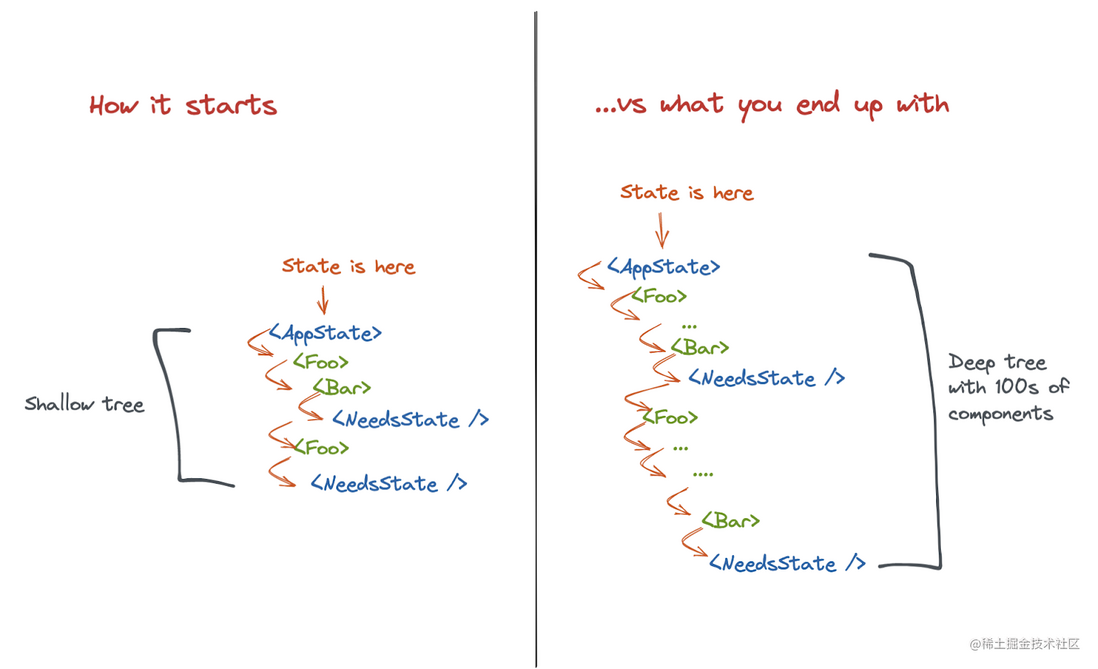 How it starts
State is here
<AppState>
<Foo>
<Bar>
<NeedsState />
<Foo>
<NeedsState />
Shallow tree
...vs what you end up with
State is here
<AppState>
<Foo>
...
<Bar>
<NeedsState />
<Foo>
...
....
<Bar>
<NeedsState />
Deep tree
with 100s of
components
@稀土掘金技术社区